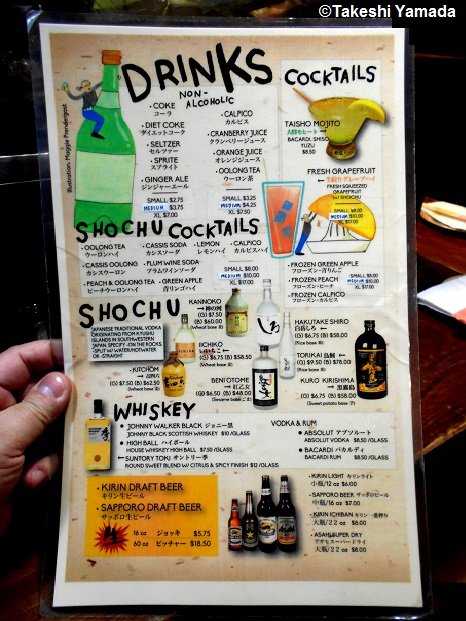 ©Takeshi Yamada
DRINKS
NON-
ALCOHOLIC
• COKE
コーラ
• DIET COKE
ダイエットコーク
• SELTZER
セルツァー
• SPRITE
スプライト
• GINGER ALE
ジンジャーエール
SMALL: $2.75
MEDIUM $3.75
XL: $17.00
• CALPICO
カルピス
• CRANBERRY JUICE
クランベリージュース
• ORANGE JUICE
オレンジジュース
OOLONG TEA
ウーロン茶
SMALL: $3.25
MEDIUM $4.25
XL: $17.50
Illustration: Maggie Prendergast
COCKTAILS
TAISHO MOJITO
大勝モヒート
BACARDI, SHISO
YUZU
$8.50
FRESH GRAPEFRUIT
生絞りグレープハイ
FRESH SQUEEZED
GRAPEFRUIT
w/ SHOCHU
SMALL: $8.00
MEDIUM $10.00
XL: $17.00
FROZEN GREEN APPLE
フローズン・青りんご
FROZEN PEACH
フローズン・ピーチ
FROZEN CALPICO
フローズン・カルピス
SMALL: $8.00
MEDIUM $10.00
XL: $17.00
SHOCHU COCKTAILS
• OOLONG TEA
ウーロンハイ
• CASSIS OOLONG
カシスウーロン
• PEACH & OOLONG TEA
ピーチウーロンハイ
• CASSIS SODA
カシスソーダ
• PLUM WINE SODA
プラムワインソーダ
• GREEN APPLE
青リンゴハイ
• LEMON
レモンハイ
• CALPICO
カルピスハイ
SMALL: $6.00
MEDIUM $10.00
XL: $17.00
SHOCHU
JAPANESE TRADITIONAL VODKA
ORIGINATING FROM KYUSHU
ISLANDS IN SOUTHWESTERN
JAPAN. SPECIFY -ON THE ROCKS
-SPLIT W/ WATER/HOTWATER
OR -STRAIGHT
KANNOKO
神の河
(G) $7.50
(B) $60.00
(Wheat base 麦)
IICHIKO
いいちこ
(G) $6.75 (B) $58.50
(Wheat base 麦)
KITCHOM
吉四六
(G) $7.50 (B) $62.50
(Wheat base 麦)
BENIOTOME
紅乙女
(G) $6.50 (B) $48.00
(Sesame base ごま)
HAKUTAKE SHIRO
白岳しろ
(G) $6.75 (B) $58.00
(Rice base 米)
TORIKAI 鳥飼
(G) $9.50 (B) $78.00
(Rice base 米)
KURO KIRISHIMA
黒霧島
(G) $6.75 (B) $58.00
(Sweet potato base 芋)
WHISKEY
• JOHNNY WALKER BLACK ジョニー黒
JOHNNY BLACK SCOTTISH WHISKEY $10/GLASS
• HIGH BALL ハイボール
HOUSE WHISKEY HIGH BALL $7.50/GLASS
SUNTORY TOKI サントリー季
ROUND SWEET BLEND W/ CITRUS & SPICY FINISH $12/GLASS
VODKA & RUM
• ABSOLUT アブソルート
ABSOLUT VODKA $8.50/GLASS
• BACARDI バカルディ
BACARDI RUM $8.50/GLASS
• KIRIN DRAFT BEER
キリン生ビール
• SAPPORO DRAFT BEER
サッポロ生ビール
16 oz ジョッキ $5.75
60 oz ピッチャー $18.50
• KIRIN LIGHT キリンライト
小瓶/12 oz $6.00
• SAPPORO BEER サッポロビール
中瓶/16 oz $7.00
• KIRIN ICHIBAN キリン一番搾り
大瓶/22 oz $8.00
• ASAHI SUPER DRY
アサヒスーパードライ
大瓶/22 oz $8.00